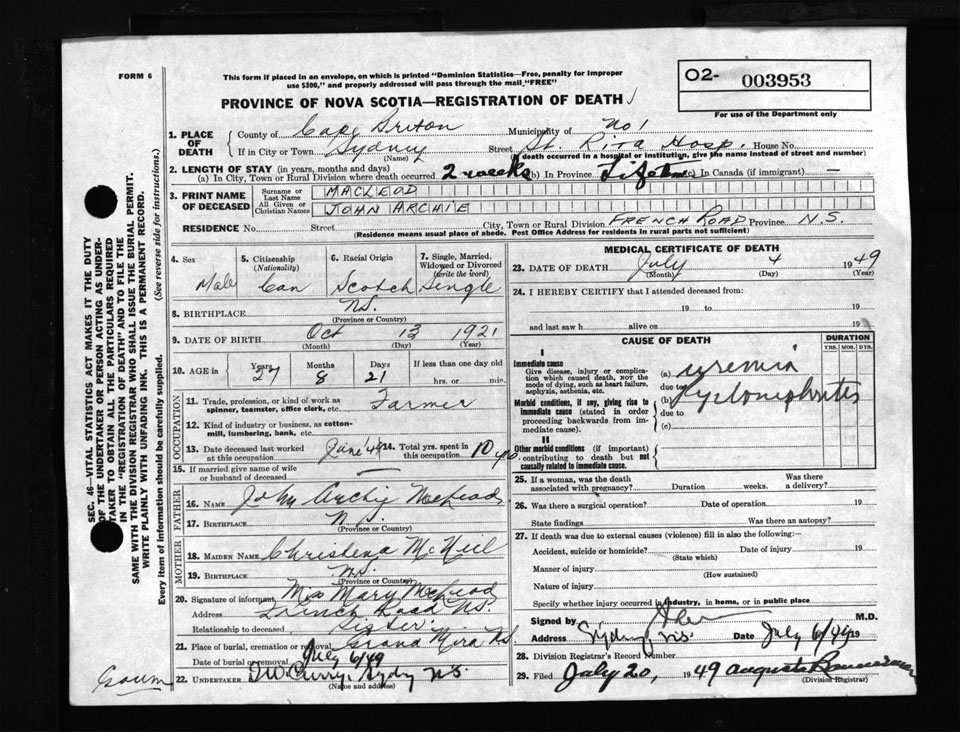 FORM 6
This form if placed in an envelope, on which is printed "Dominion Statistics—Free, penalty for improper
use $300," and properly addressed will pass through the mail "FREE"
O2- 003953
For use of the Department only
PROVINCE OF NOVA SCOTIA—REGISTRATION OF DEATH
1. PLACE OF DEATH
County of Cape Breton Municipality of No 1
If in City or Town Sydney Street St. Rita Hosp. House No.
(Name) (If death occurred in a hospital or institution, give the name instead of street and number)
2. LENGTH OF STAY (in years, months and days)
(a) In City, Town or Rural Division where death occurred 2 weeks (b) In Province Life (c) In Canada (if immigrant) —
3. PRINT NAME OF DECEASED
Surname or Last Name MACLEOD
All Given or Christian Names JOHN ARCHIE
RESIDENCE No. Street City, Town or Rural Division FRENCH ROAD Province N.S.
(Residence means usual place of abode. Post Office Address for residents in rural parts not sufficient)
4. Sex Male
5. Citizenship (Nationality) Can
6. Racial Origin Scotch
7. Single, Married, Widowed or Divorced (write the word) Single
8. BIRTHPLACE N.S.
(Province or Country)
9. DATE OF BIRTH Oct 13 1921
(Month) (Day) (Year)
10. AGE in Years 27 Months 8 Days 21 If less than one day old hrs. or min.
OCCUPATION
11. Trade, profession, or kind of work as spinner, teamster, office clerk, etc. Farmer
12. Kind of industry or business, as cotton-mill, lumbering, bank, etc.
13. Date deceased last worked at this occupation June '48 14. Total yrs. spent in this occupation 10 yrs.
15. If married give name of wife or husband of deceased —
FATHER
16. NAME John Archie McLeod
17. BIRTHPLACE N.S.
(Province or Country)
MOTHER
18. MAIDEN NAME Christena McNeil
19. BIRTHPLACE N.S.
(Province or Country)
20. Signature of informant Mary McLeod
Address French Road N.S.
Relationship to deceased Sister
21. Place of burial, cremation or removal Grand Mira N.S.
Date of burial or removal July 6/49
22. UNDERTAKER T.W. Curry, Sydney N.S.
(Name and address)
MEDICAL CERTIFICATE OF DEATH
23. DATE OF DEATH July 4 1949
(Month) (Day) (Year)
24. I HEREBY CERTIFY that I attended deceased from:
19 to 19
and last saw h alive on 19
CAUSE OF DEATH
DURATION
YRS. MOS. DYS.
I
Immediate cause
Give disease, injury or complication which caused death, not the mode of dying, such as heart failure, asphyxia, asthenia, etc.
(a) uremia
due to
Morbid conditions, if any, giving rise to immediate cause (stated in order proceeding backwards from immediate cause).
(b)
due to
(c)
II
Other morbid conditions (if important) contributing to death but not causally related to immediate cause.
25. If a woman, was the death associated with pregnancy? Duration weeks. Was there a delivery?
26. Was there a surgical operation? Date of operation 19
State findings Was there an autopsy?
27. If death was due to external causes (violence) fill in also the following:—
Accident, suicide or homicide? Date of injury 19
(State which)
Manner of injury
(How sustained)
Nature of injury
Specify whether injury occurred in industry, in home, or in public place
Signed by M.D.
Address Sydney N.S. Date July 6/49 19
28. Division Registrar's Record Number
29. Filed July 20, 1949
(Division Registrar)
SEC. 46—VITAL STATISTICS ACT MAKES IT THE DUTY
OF THE UNDERTAKER OR PERSON ACTING AS UNDER-
TAKER TO OBTAIN ALL THE PARTICULARS REQUIRED
IN THE "REGISTRATION OF DEATH" AND TO FILE THE
SAME WITH THE DIVISION REGISTRAR WHO SHALL ISSUE THE BURIAL PERMIT.
WRITE PLAINLY WITH UNFADING INK. THIS IS A PERMANENT RECORD.
Every item of information should be carefully supplied. (See reverse side for instructions.)